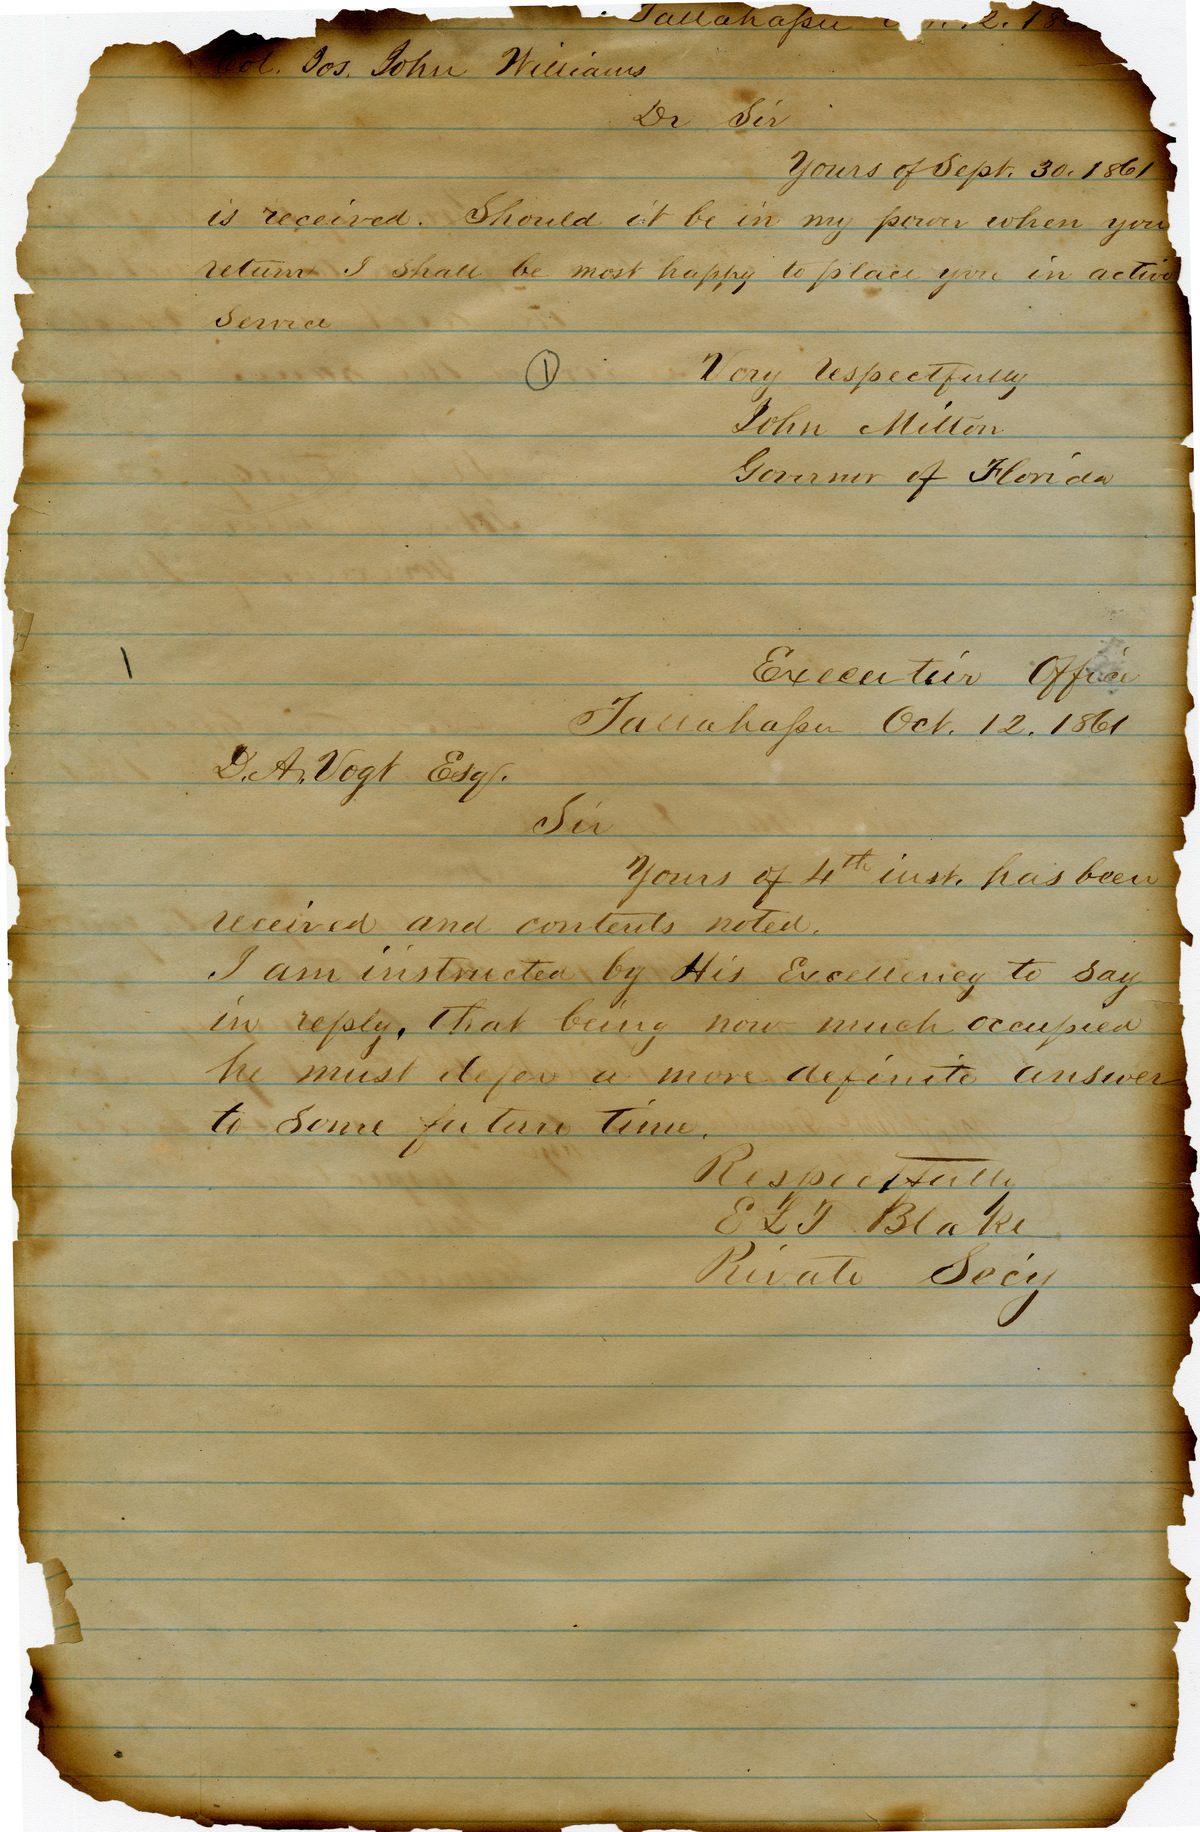 Tallahassee 2. 18
Col. Jos. John Williams
Dr Sir
Yours of Sept. 30. 1861
is received. Should it be in my power when you
return I shall be most happy to place you in active
Service
1
Very respectfully
John Milton
Governor of Florida
1
Executive Office
Tallahassee Oct. 12. 1861
D. A. Vogt Esq.
Sir
Yours of 4th inst. has been
received and contents noted.
I am instructed by His Excellency to say
in reply, that being now much occupied
he must defer a more definite answer
to some future time.
Respectfully
E L T Blake
Private Secy